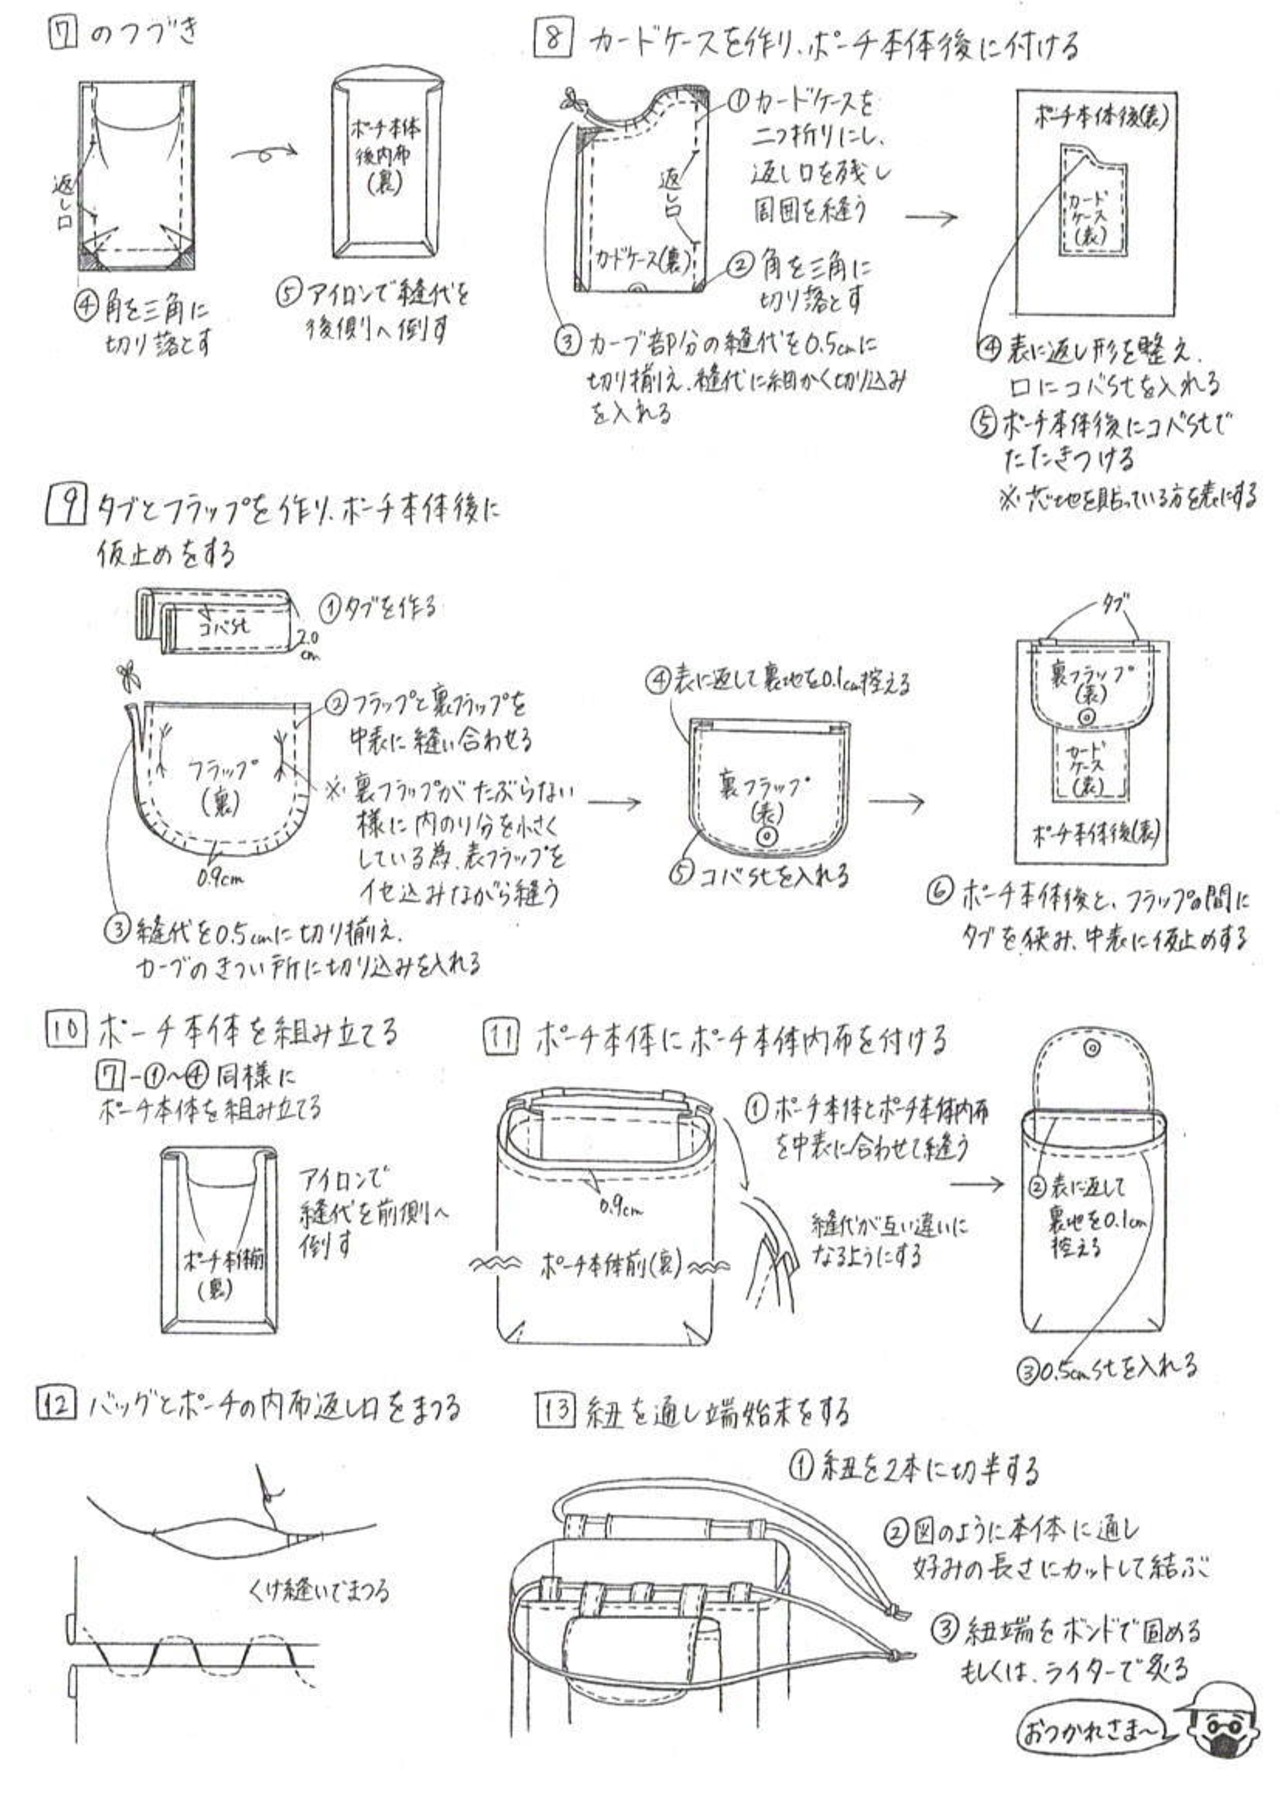 7 のつづき
返し口
④角を三角に
切り落とす
ポーチ本体
後内布
(裏)
⑤アイロンで縫代を
後側へ倒す
8 カードケースを作り、ポーチ本体後に付ける
①カードケースを
二つ折りにし、
返し口を残し
周囲を縫う
返し口
カードケース(裏)
②角を三角に
切り落とす
③カーブ部分の縫代を0.5cmに
切り揃え、縫代に細かく切り込み
を入れる
ポーチ本体後(表)
カード
ケース
(表)
④表に返し形を整え、
口にコバstを入れる
⑤ポーチ本体後にコバstで
たたきつける
※芯地を貼っている方を表にする
9 タブとフラップを作り、ポーチ本体後に
仮止めをする
コバst
2.0
cm
①タブを作る
フラップ
(裏)
0.9cm
②フラップと裏フラップを
中表に縫い合わせる
※裏フラップがたぶらない
様に内のり分を小さく
している為、表フラップを
イセ込みながら縫う
③縫代を0.5cmに切り揃え、
カーブのきつい所に切り込みを入れる
④表に返して裏地を0.1cm控える
裏フラップ
(表)
⑤コバstを入れる
タブ
裏フラップ
(表)
カード
ケース
(表)
ポーチ本体後(表)
⑥ポーチ本体後と、フラップの間に
タブを挟み、中表に仮止めする
10 ポーチ本体を組み立てる
7-①~④同様に
ポーチ本体を組み立てる
アイロンで
縫代を前側へ
倒す
ポーチ本体前
(裏)
11 ポーチ本体にポーチ本体内布を付ける
0.9cm
ポーチ本体前(裏)
①ポーチ本体とポーチ本体内布
を中表に合わせて縫う
縫代が互い違いに
なるようにする
②表に返して
裏地を0.1cm
控える
③0.5cmstを入れる
12 バッグとポーチの内布返し口をまつる
くけ縫いでまつる
13 紐を通し端始末をする
①紐を2本に切半する
②図のように本体に通し
好みの長さにカットして結ぶ
③紐端をボンドで固める
もしくは、ライターで炙る
おつかれさま〜